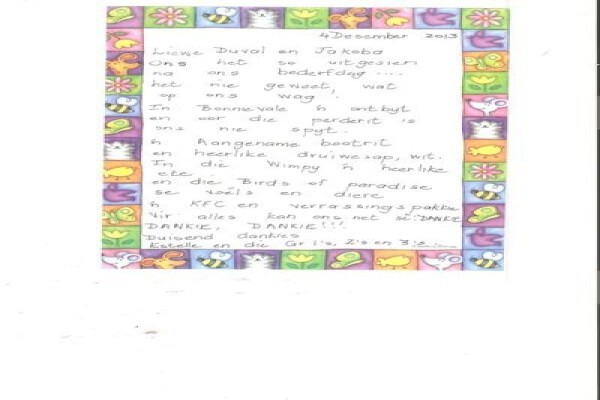 4 Desember 2013
Liewe Duval en Jakoba
Ons het so uitgesien
na ons bederfdag ....
het nie geweet, wat
op ons wag!
In Bonnievale 'n ontbyt
en oor die perderit is
ons nie spyt.
'n Aangename bootrit
en heerlike druiwesap, wit.
In die Wimpy 'n heerlike
ete
en die Birds of paradise
se voëls en diere
'n KFC en verrassings pakkie
Vir alles kan ons net sê: DANKIE
DANKIE, DANKIE!!!
Duisend dankies
Estelle en die Gr 1's, 2's en 3's